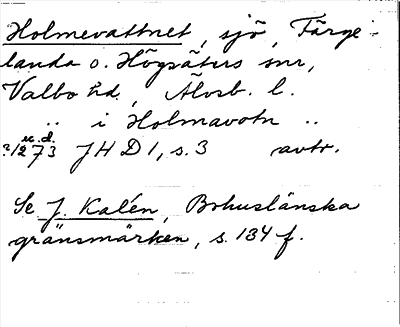 Holmevattnet, sjö, Färge-
landa o. Högsäters snr,
Valbo hd., Älvsb. l.
.. i Holmavotn ..
u.d.
?/2 73 JH D1, s. 3 avtr.
Se J. Kalén, Bohuslänska
gränsmärken, s. 134 f.